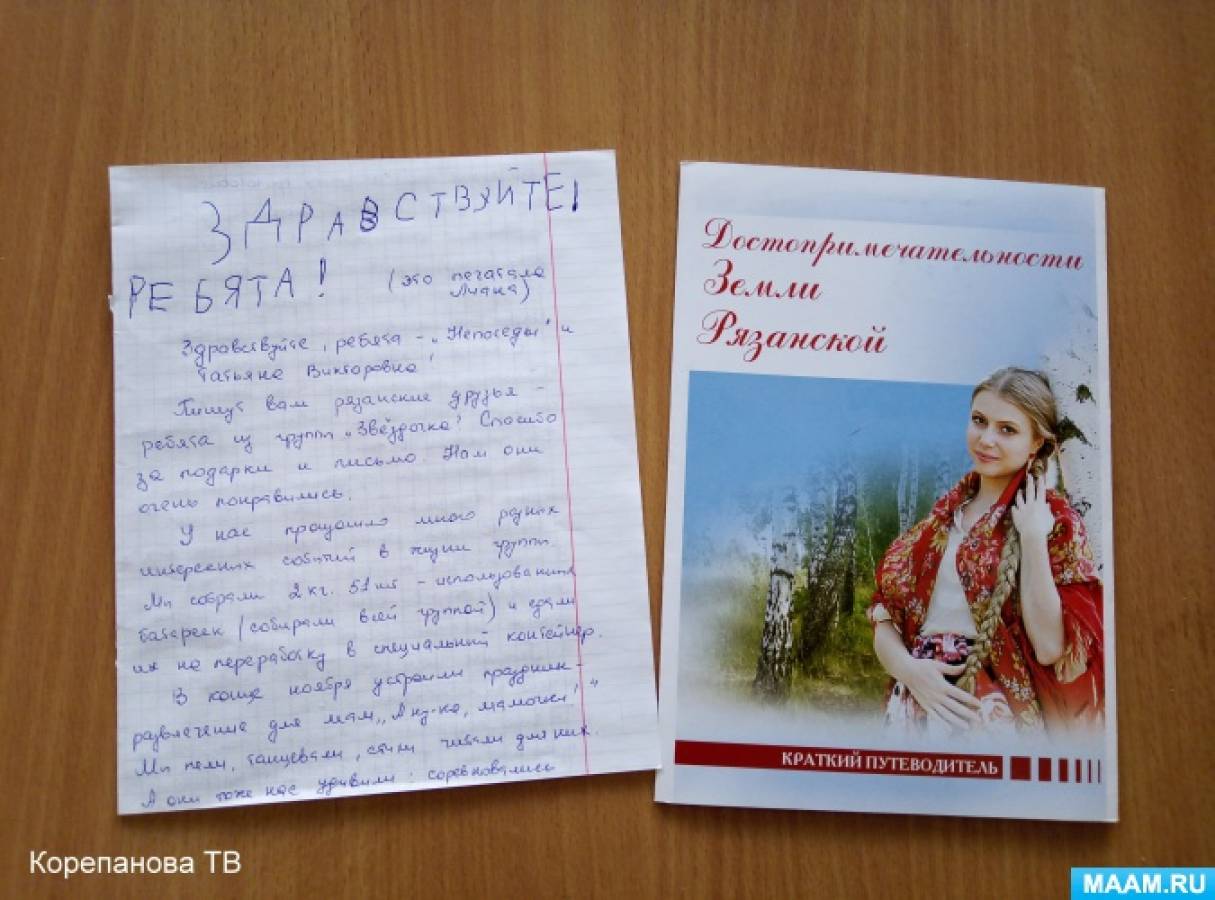 ЗДРАВСТВУЙТЕ,
РЕБЯТА!
(это печатала
Лиана)
Здравствуйте, ребята - „Непоседы" и
Татьяна Викторовна!
Пишут вам рязанские друзья -
ребята из групп „Звёздочка! Спасибо
за подарки и письмо. Нам они
очень понравились.
У нас произошло много разных
интересных событий в жизни групп.
Мы собрали 2 кг. 51 шт - использованных
батареек (собирали всей группой) и сдали
их на переработку в специальный контейнер.
В конце ноября устроили праздник -
развлечение для мам „А ну-ка, мамочки!"
Мы пели, танцевали, стихи читали для них.
А они тоже нас удивили: соревновались
Достопримечательности
Земли
Рязанской
КРАТКИЙ ПУТЕВОДИТЕЛЬ
Корепанова ТВ
MAAM.RU